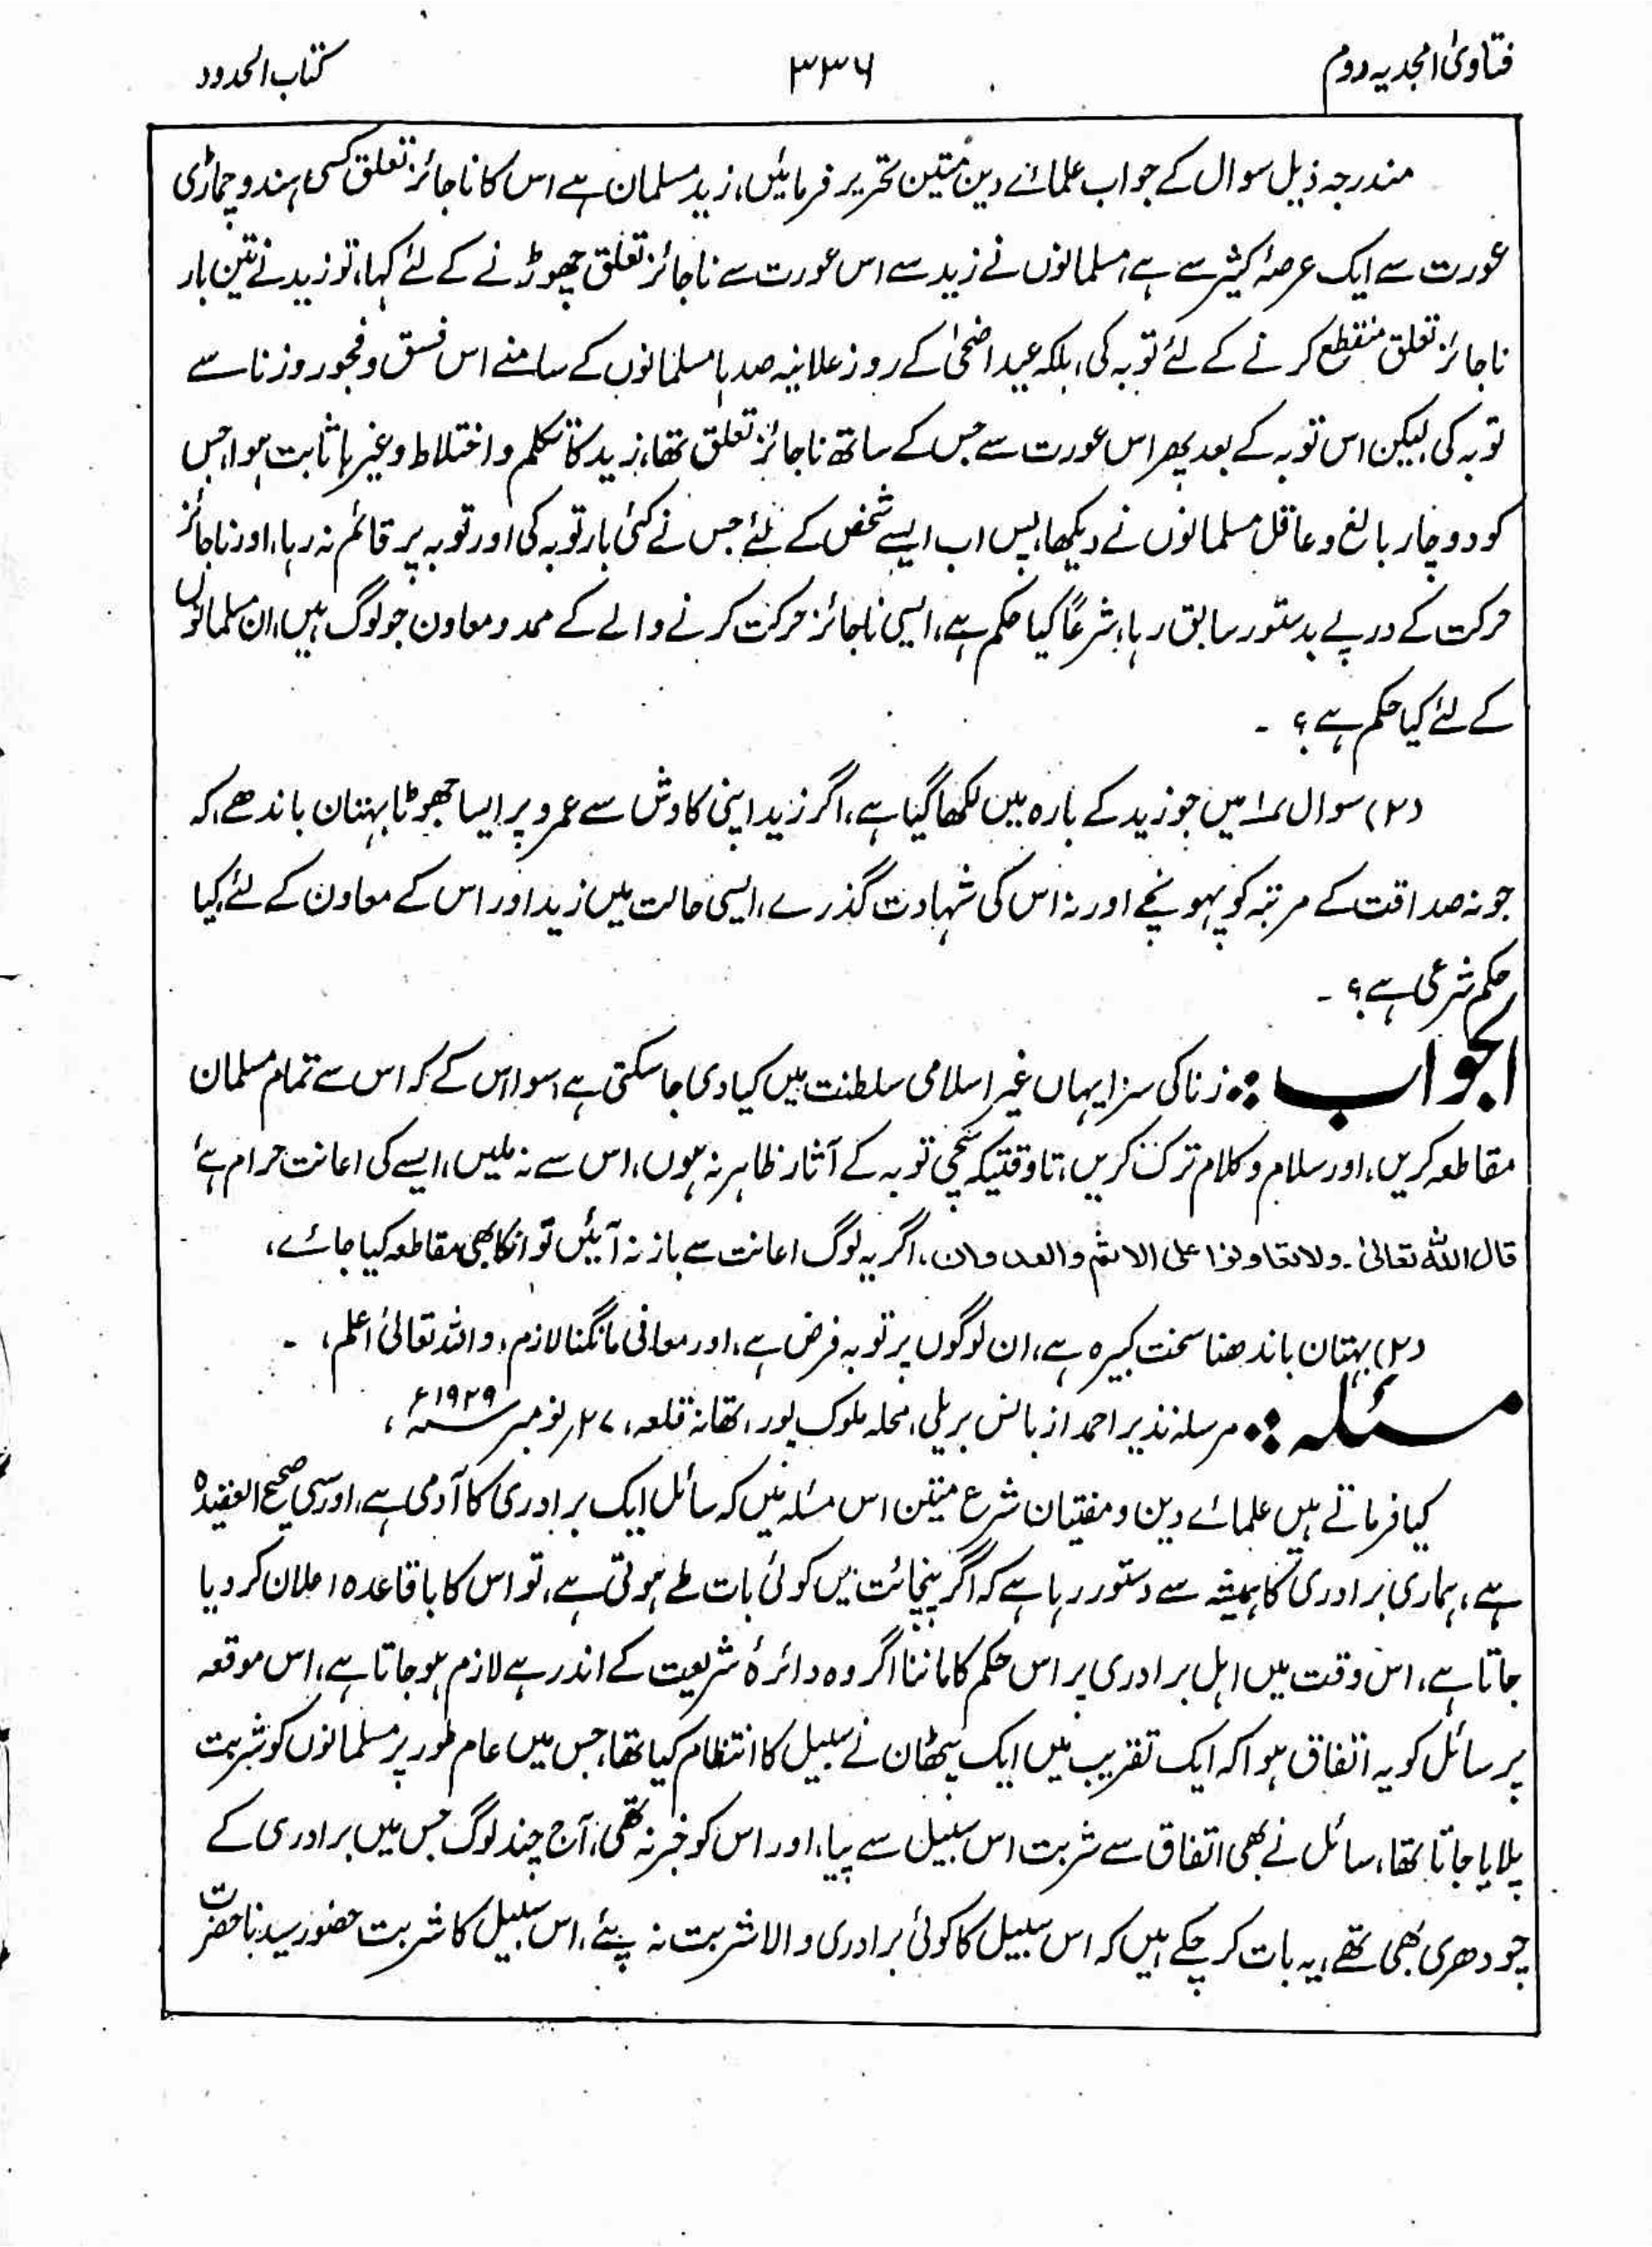 فتاویٰ امجدیہ دوم ۳۳۶ کتاب الحدود
مندرجہ ذیل سوال کے جواب علمائے دین متین تحریر فرمائیں، زید مسلمان ہے اس کا ناجائز تعلق کسی ہندو چماڑی
عورت سے ایک عرصۂ کثیر سے ہے، مسلمانوں نے زید سے اس عورت سے ناجائز تعلق چھوڑنے کے لئے کہا، تو زید نے تین بار
ناجائز تعلق منقطع کرنے کے لئے توبہ کی، بلکہ عید اضحیٰ کے روز علانیہ صدہا مسلمانوں کے سامنے اس فسق و فجور و زنا سے
توبہ کی، لیکن اس توبہ کے بعد پھر اس عورت سے جس کے ساتھ ناجائز تعلق تھا، زید کا تکلم و اختلاط وغیرہا ثابت ہوا، جس
کو دو چار بالغ و عاقل مسلمانوں نے دیکھا، پس اب ایسے شخص کے لئے جس نے کئی بار توبہ کی اور توبہ پر قائم نہ رہا، اور ناجائز
حرکت کے درپے بدستور سابق رہا، شرعاً کیا حکم ہے، ایسی ناجائز حرکت کرنے والے کے ممد و معاون جو لوگ ہیں، ان مسلمانوں
کے لئے کیا حکم ہے؟ ۔
(۲) سوال ۱؎ میں جو زید کے بارہ میں لکھا گیا ہے، اگر زید اپنی کاوش سے عمرو پر ایسا جھوٹا بہتان باندھے، کہ
جو نہ صداقت کے مرتبہ کو پہونچے اور نہ اس کی شہادت گذرے، ایسی حالت میں زید اور اس کے معاون کے لئے کیا
حکم شرعی ہے؟ ۔
الجواب :: زنا کی سزا یہاں غیر اسلامی سلطنت میں کیا دی جاسکتی ہے، سوا اس کے کہ اس سے تمام مسلمان
مقاطعہ کریں، اور سلام و کلام ترک کریں، تا وقتیکہ سچی توبہ کے آثار ظاہر نہ ہوں، اس سے نہ ملیں، ایسے کی اعانت حرام ہے،
قال اللہ تعالیٰ۔ ولا تعاونوا علی الاثم والعدوان، اگر یہ لوگ اعانت سے باز نہ آئیں تو انکا بھی مقاطعہ کیا جائے،
(۲) بہتان باندھنا سخت کبیرہ ہے، ان لوگوں پر توبہ فرض ہے، اور معافی مانگنا لازم، واللہ تعالیٰ اعلم، ۔
مسئلہ :: مرسلہ نذیر احمد از بانس بریلی، محلہ ملوک پور، تھانہ قلعہ، ۲۷ نومبر سنہ ۱۹۲۹ء،
کیا فرماتے ہیں علمائے دین و مفتیان شرع متین اس مسئلہ میں کہ سائل ایک برادری کا آدمی ہے، اور سنی صحیح العقیدہ
ہے، ہماری برادری کا ہمیشہ سے دستور رہا ہے کہ اگر پنچائت میں کوئی بات طے ہوتی ہے، تو اس کا باقاعدہ اعلان کر دیا
جاتا ہے، اس وقت میں اہل برادری پر اس حکم کا ماننا اگر وہ دائرۂ شریعت کے اندر ہے لازم ہو جاتا ہے، اس موقعہ
پر سائل کو یہ اتفاق ہوا کہ ایک تقریب میں ایک پٹھان نے سبیل کا انتظام کیا تھا، جس میں عام طور پر مسلمانوں کو شربت
پلایا جاتا تھا، سائل نے بھی اتفاق سے شربت اس سبیل سے پیا، اور اس کو خبر نہ تھی، آج چند لوگ جس میں برادری کے
چودھری بھی تھے، یہ بات کر چکے ہیں کہ اس سبیل کا کوئی برادری والا شربت نہ پئے، اس سبیل کا شربت حضور سیدنا حضرت